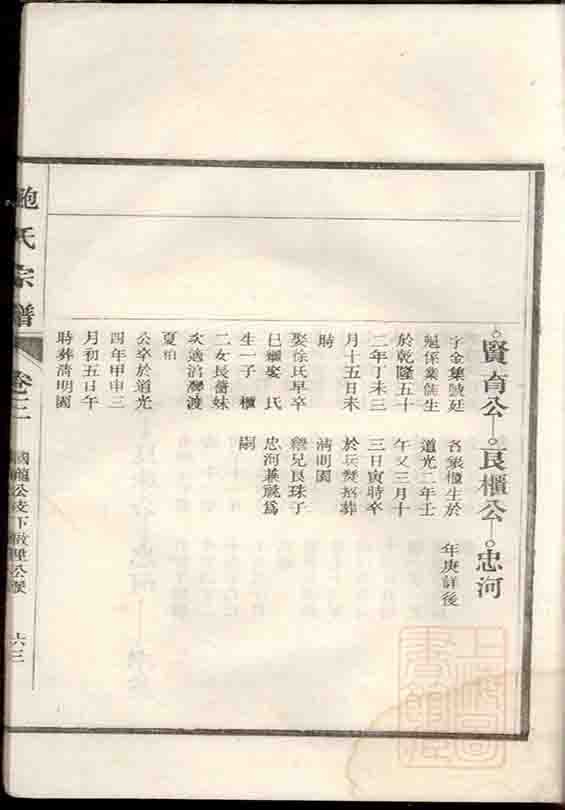 賢育公 良櫃公 忠河
字金集號廷
艇係業儒生
於乾隆五十
二年丁未三
月十五日未
時
娶徐氏早卒
繼娶 氏
生一子 櫃
二女長 妹
次適 灣渡
夏柏
公卒於道光
四年甲申三
月初五日午
時葬清明園
名象櫃生於
道光二年壬
午又三月十
三日寅時卒
於兵燹 葬
清明園
繼兄良珠子
忠河兼祧為
嗣
年庚詳後
鮑氏宗譜
卷之
國龍公支下 公派
六三
上海圖書館藏